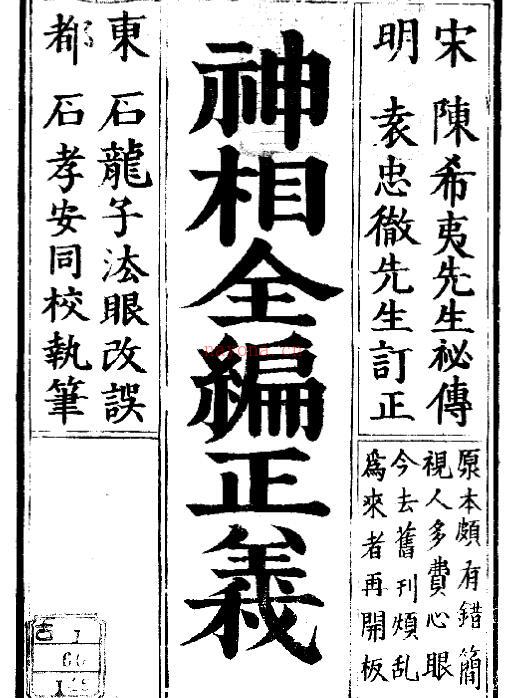 宋 陳希夷先生祕傳
明 袁忠徹先生訂正
原本頗有錯簡
視人多費心眼
今去舊刊煩乱
爲來者再開板
神相全編正義
東 石龍子法眼改誤
都 石孝安同校執筆